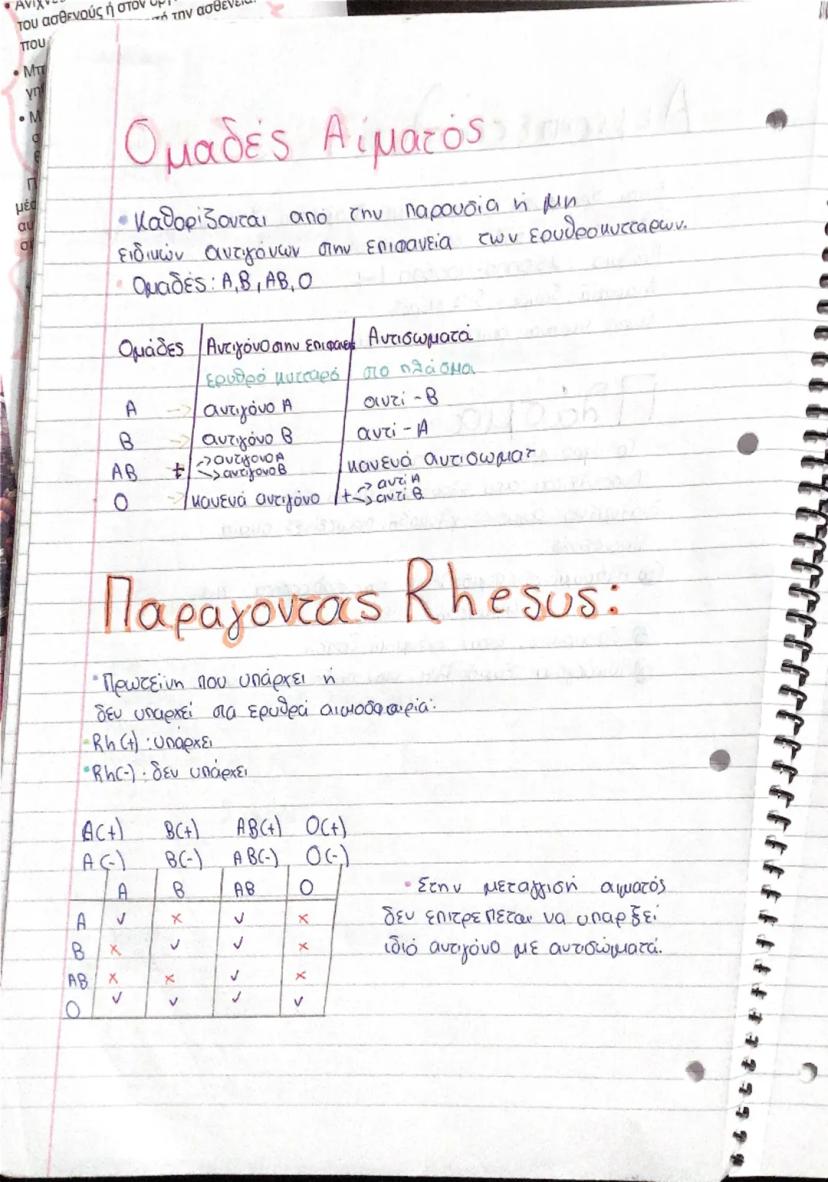 του ασθενούς ή στον
την ασθένει
που
• Μπ
γη
• Μ
Ομαδές Αίματός
• Καθορίζονται από την παρουδία ή μη
ειδικών αντιγόνων στην επιφανεία των ερυθροκυττάρων.
• Ομαδές: Α, Β, ΑΒ, Ο
Ομάδες Αντιγόνο στην επιφανεια Αντισωματά
ερυθρό κυτταρό στο πλάσμα
Α → αντιγόνο Α αντί - Β
Β → αντιγόνο Β αντί - Α
ΑΒ + → αντιγονο Α → αντιγονο Β κανενά αντισωματ
Ο → κανενά αντιγόνο + → αντί Α → αντί Β
Παραγοντας Rhesus:
• Πρωτεϊνη που υπάρχει ή
δεν υπαρχεί στα ερυθρά αιμοσφαιρία:
• Rh(+) : υπάρχει
• Rh(-) : δεν υπάρχει
Α(+) Β(+) ΑΒ(+) Ο(+)
Α(-) Β(-) ΑΒ(-) Ο(-)
Α Β ΑΒ Ο
Α ✓ × ✓ ×
Β × ✓ ✓ ×
ΑΒ × × ✓ ×
Ο ✓ ✓ ✓ ✓
• Στην μεταγγισή αιματός
δεν επιτρεπέται να υπαρξεί
ιδιό αντιγόνο με αντισώματά.